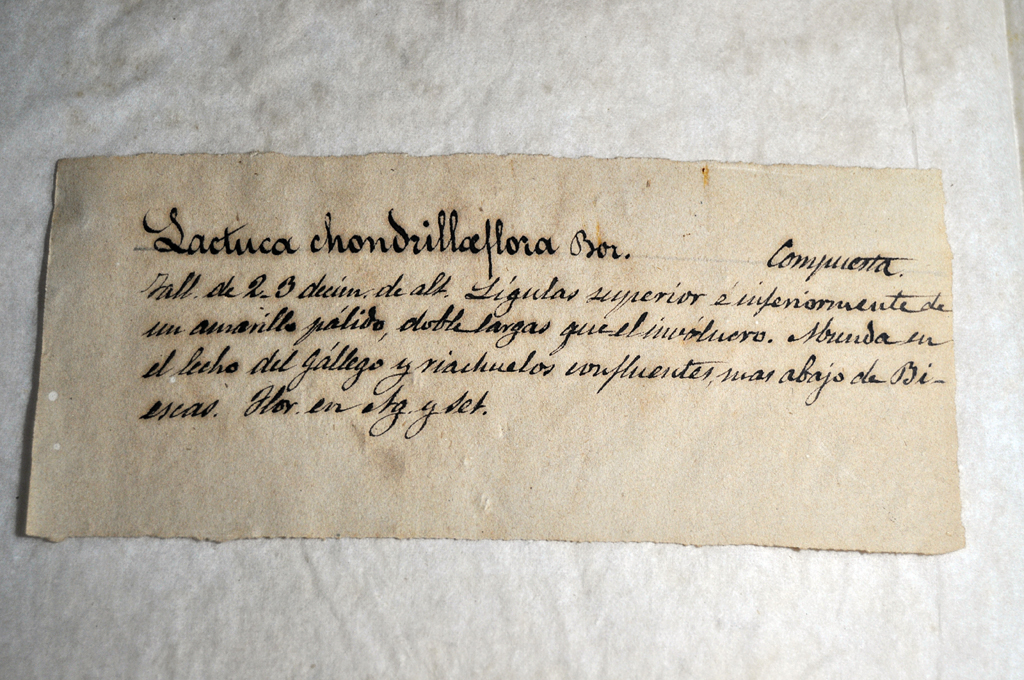 Lactuca chondrillæflora Bor. Compuesta.
Tall. de 2-3 decím. de alt. Lígulas superior é inferiormente de
un amarillo pálido, doble largas que el invólucro. Abunda en
el lecho del Gállego y riachuelos confluentes, mas abajo de Bi-
escas. Flor. en Ag. y Set.